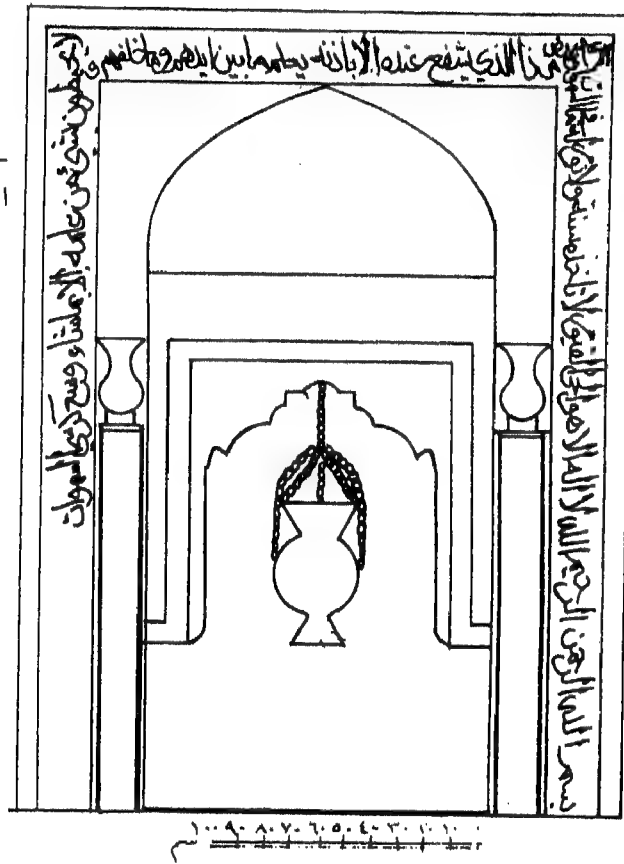 بسم الله الرحمن الرحيم الله لا اله الا هو الحي القيوم لا تاخذه سنة ولا نوم له ما في السموات
من ذا الذي يشفع عنده الا باذنه يعلم ما بين ايديهم وما خلفهم و
لا يحيطون بشئ من علمه الا بما شاء وسع كرسي السموات
١٠٠ ٩٠ ٨٠ ٧٠ ٦٠ ٥٠ ٤٠ ٣٠ ٢٠ ١٠ ٠